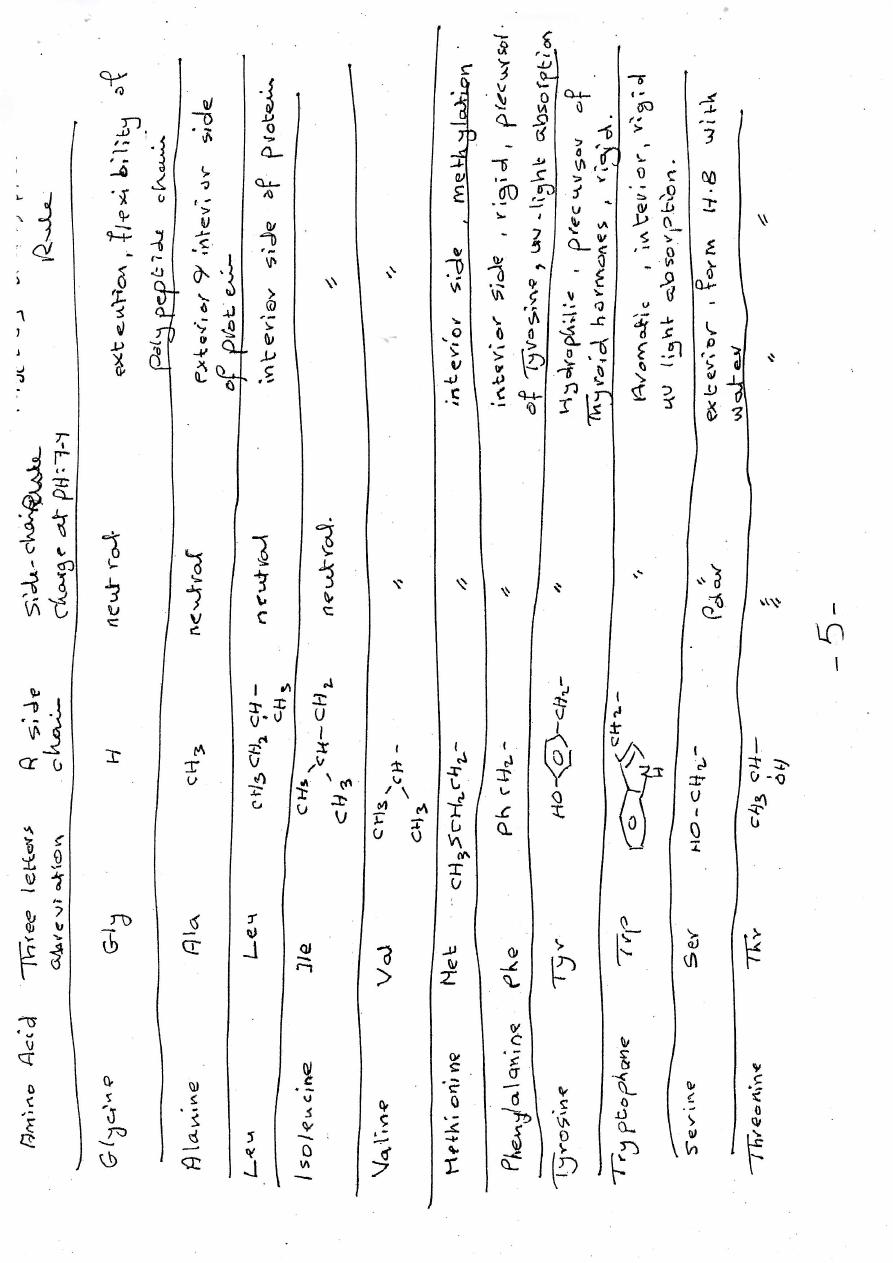 Amino Acid Three letters R side Side-chain Rule
abreviation chain charge at pH:7-4
Glycine Gly H neutral extention, flexibility of
polypeptide chain
Alanine Ala CH3 neutral exterior & interior side
of protein
Leu Leu CH3CH2CH- neutral interior side of protein
CH3
Isoleucine Ile CH3 CH-CH2 neutral. "
CH3
Valine Val CH3 CH- " "
CH3
Methionine Met CH3SCH2CH2- " interior side, methylation
Phenylalanine Phe PhCH2- " interior side, rigid, precursor
of Tyrosine, uv-light absorption
Tyrosine Tyr HO- -CH2- " Hydrophilic, precursor of
Thyroid hormones, rigid.
Tryptophane Trp CH2- " Aromatic, interior, rigid
N uv light absorption.
H
Serine Ser HO-CH2- " exterior, form H.B with
Polar water
Threonine Thr CH3 CH- " " "
OH
-5-